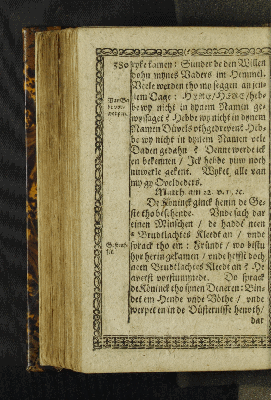 380 ryke kamen: Sunder de den Willen
dohn mynes Vaders im Hemmel.
Veele werden tho my seggen an jen-
nem Dage: HERE/HERE/hebbe
be wy nicht in dynem Namen ge-
wyssaget? Hebbe wy nicht in dynem
Namen Düvels uthgedreven? Heb-
be wy nicht in dynem Namen vele
Daden gedahn? Denn werde ick
en bekennen / Ick hebbe yuw noch
nüwerle gekent. Wyket alle van
my gy Oveldeders.
Matth. am 22. v. 11. &c.
De Köninck ginck henin de Ge-
ste tho beseende. Unde sach dar
einen Minschen / de hadde neen
Brudtlachtes Kleedt an / unde
sprack tho em: Fründt / wo bistu
hyr herin gekamen / unde heffst doch
neen Brudtlachtes Kleedt an? He
averst vorstummede. Do sprack
de Köninck tho synen Deneren: Bin-
det em Hende unde Vöthe / unde
werpet en in de Düsternisse henuth/
dar